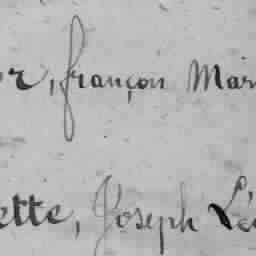 or, françois Mar
ette, Joseph Lé